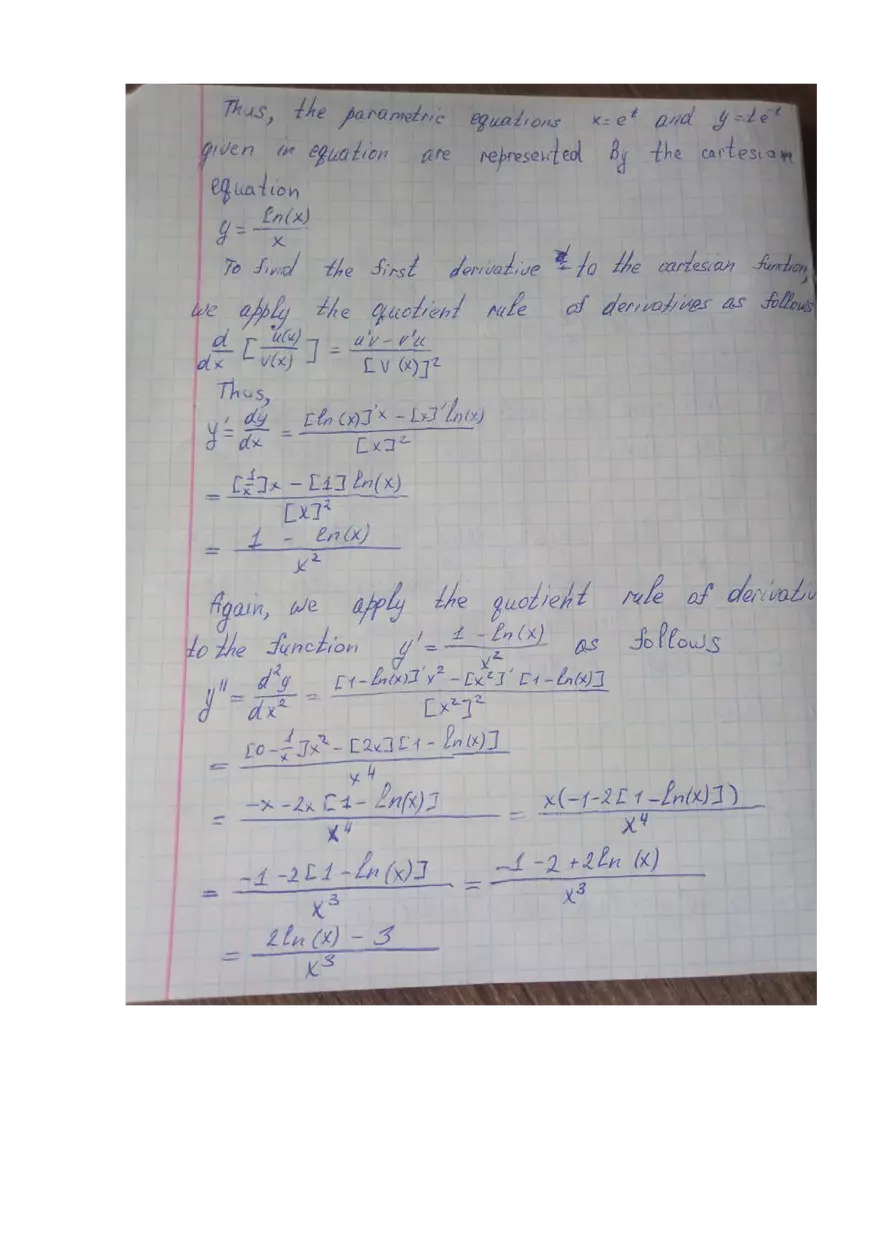 Thus, the parametric equations x=e^t and y=te^-t
given in equation are represented By the cartesian
equation
y = ln(x)/x
To find the first derivative to the cartesian function,
we apply the quotient rule of derivatives as follows
d/dx [u(x)/v(x)] = (u'v - v'u)/[v(x)]²
Thus,
y' = dy/dx = ([ln(x)]'x - [x]'ln(x))/[x]²
= ([1/x]x - [1]ln(x))/[x]²
= (1 - ln(x))/x²
Again, we apply the quotient rule of derivativ
to the function y' = (1 - ln(x))/x² as follows
y'' = d²y/dx² = ([1-ln(x)]'x² - [x²]'[1-ln(x)])/[x²]²
= ([0 - 1/x]x² - [2x][1 - ln(x)])/x⁴
= (-x - 2x[1 - ln(x)])/x⁴ = x(-1-2[1-ln(x)])/x⁴
= (-1-2[1-ln(x)])/x³ = (-1-2+2ln(x))/x³
= (2ln(x) - 3)/x³